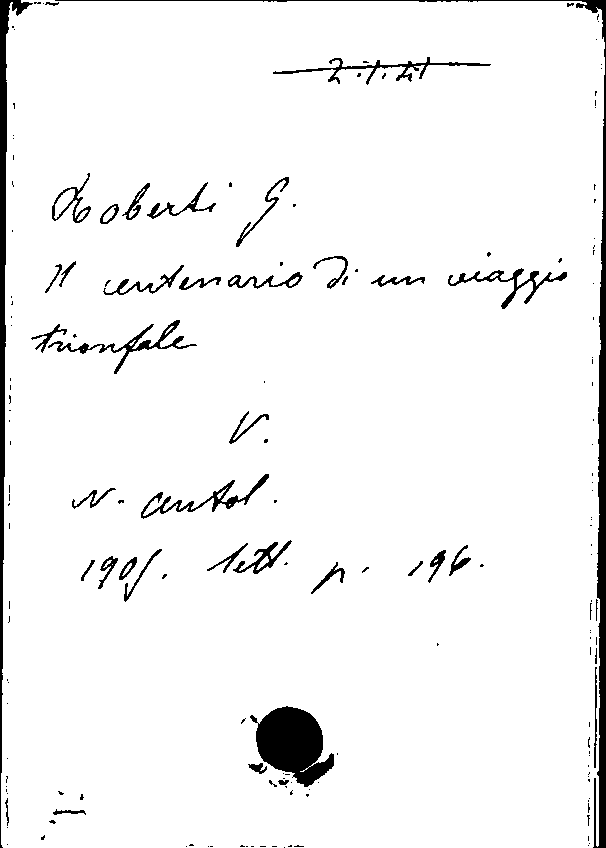 Roberti G.
Il centenario di un viaggio
trionfale
V.
N. antol.
1905. Sett. p. 196.